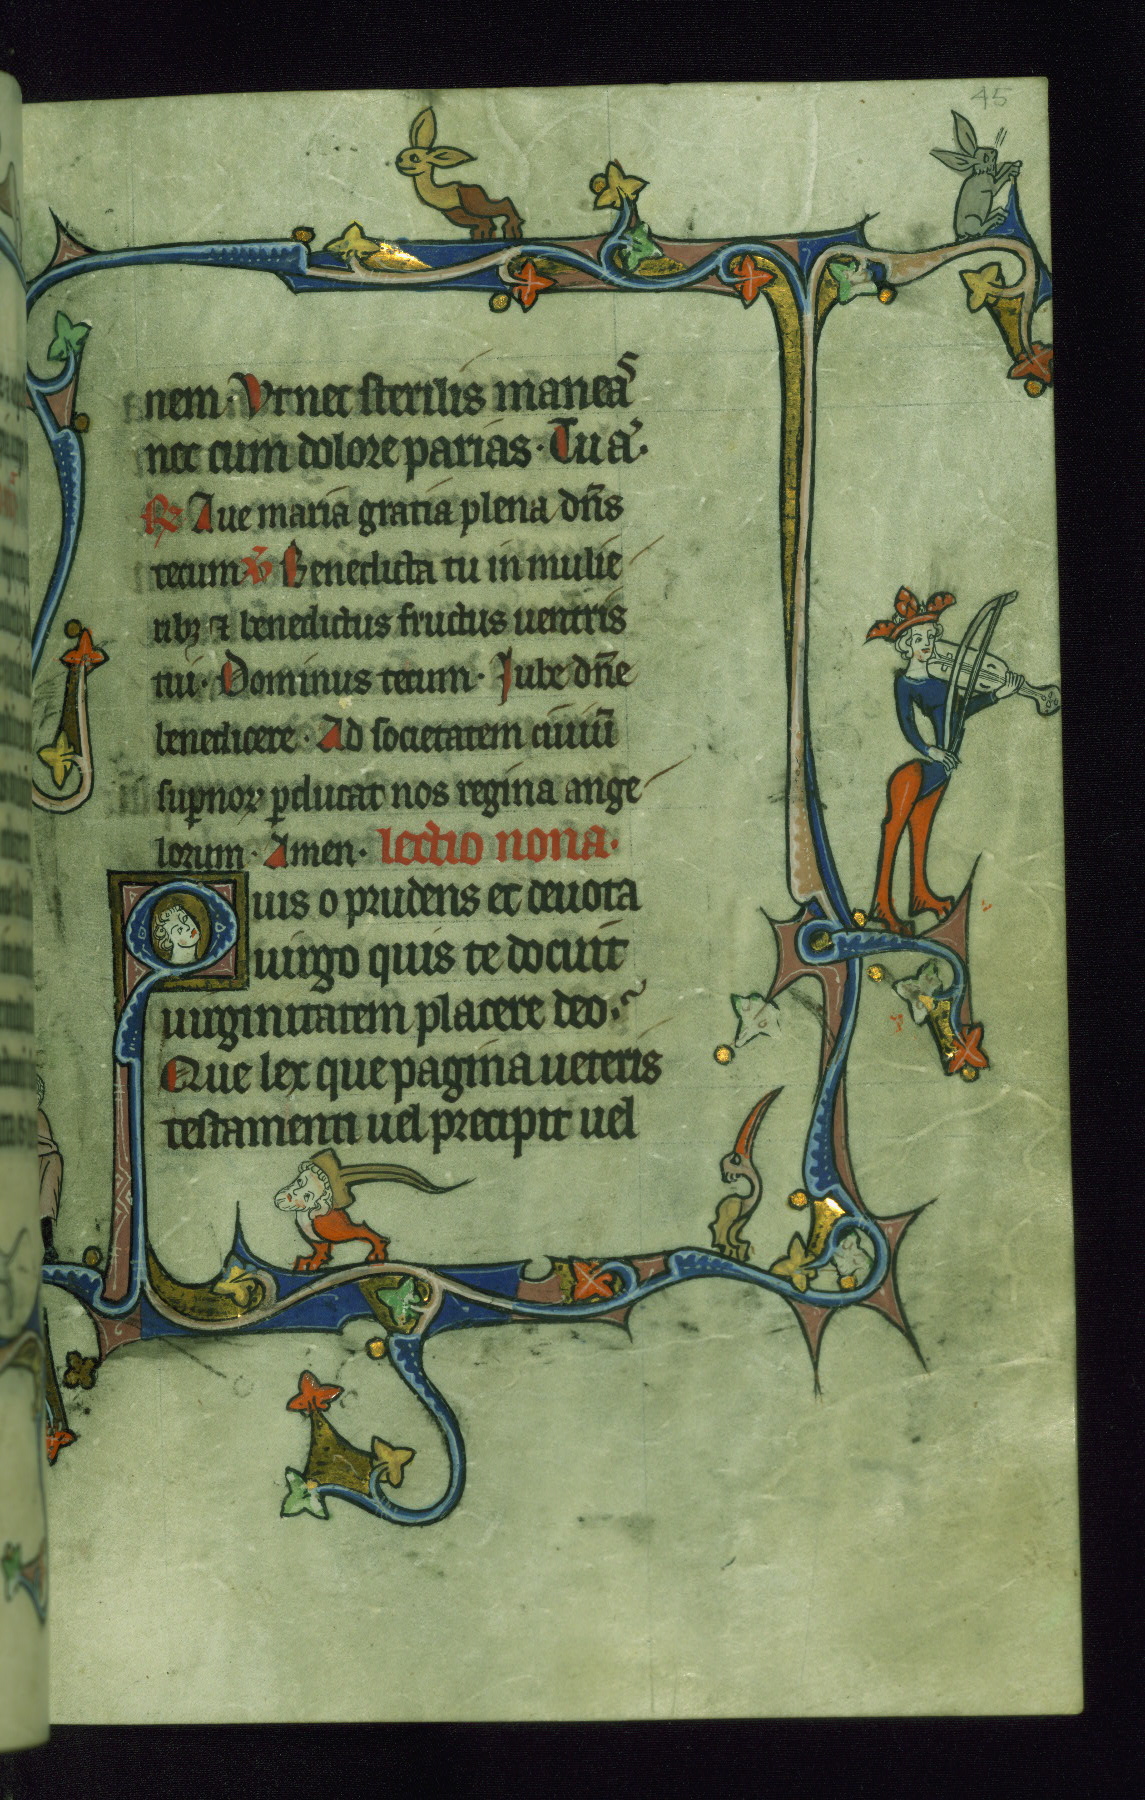 45
nem. Ut nec sterilis maneas
nec cum dolore parias. Tu a.
R Aue maria gratia plena dn̄s
tecum ℣ Benedicta tu in mulie
ribꝫ ⁊ benedictus fructus uentris
tui. Dominus tecum. Iube dn̄e
benedicere. Ad societatem ciuiū
supnoꝝ ꝑducat nos regina ange
lorum. Amen. lectio nona.
Quis o prudens et deuota
uirgo quis te docuit
uirginitatem placere deo.
Que lex que pagina ueteris
testamenti uel precipit uel